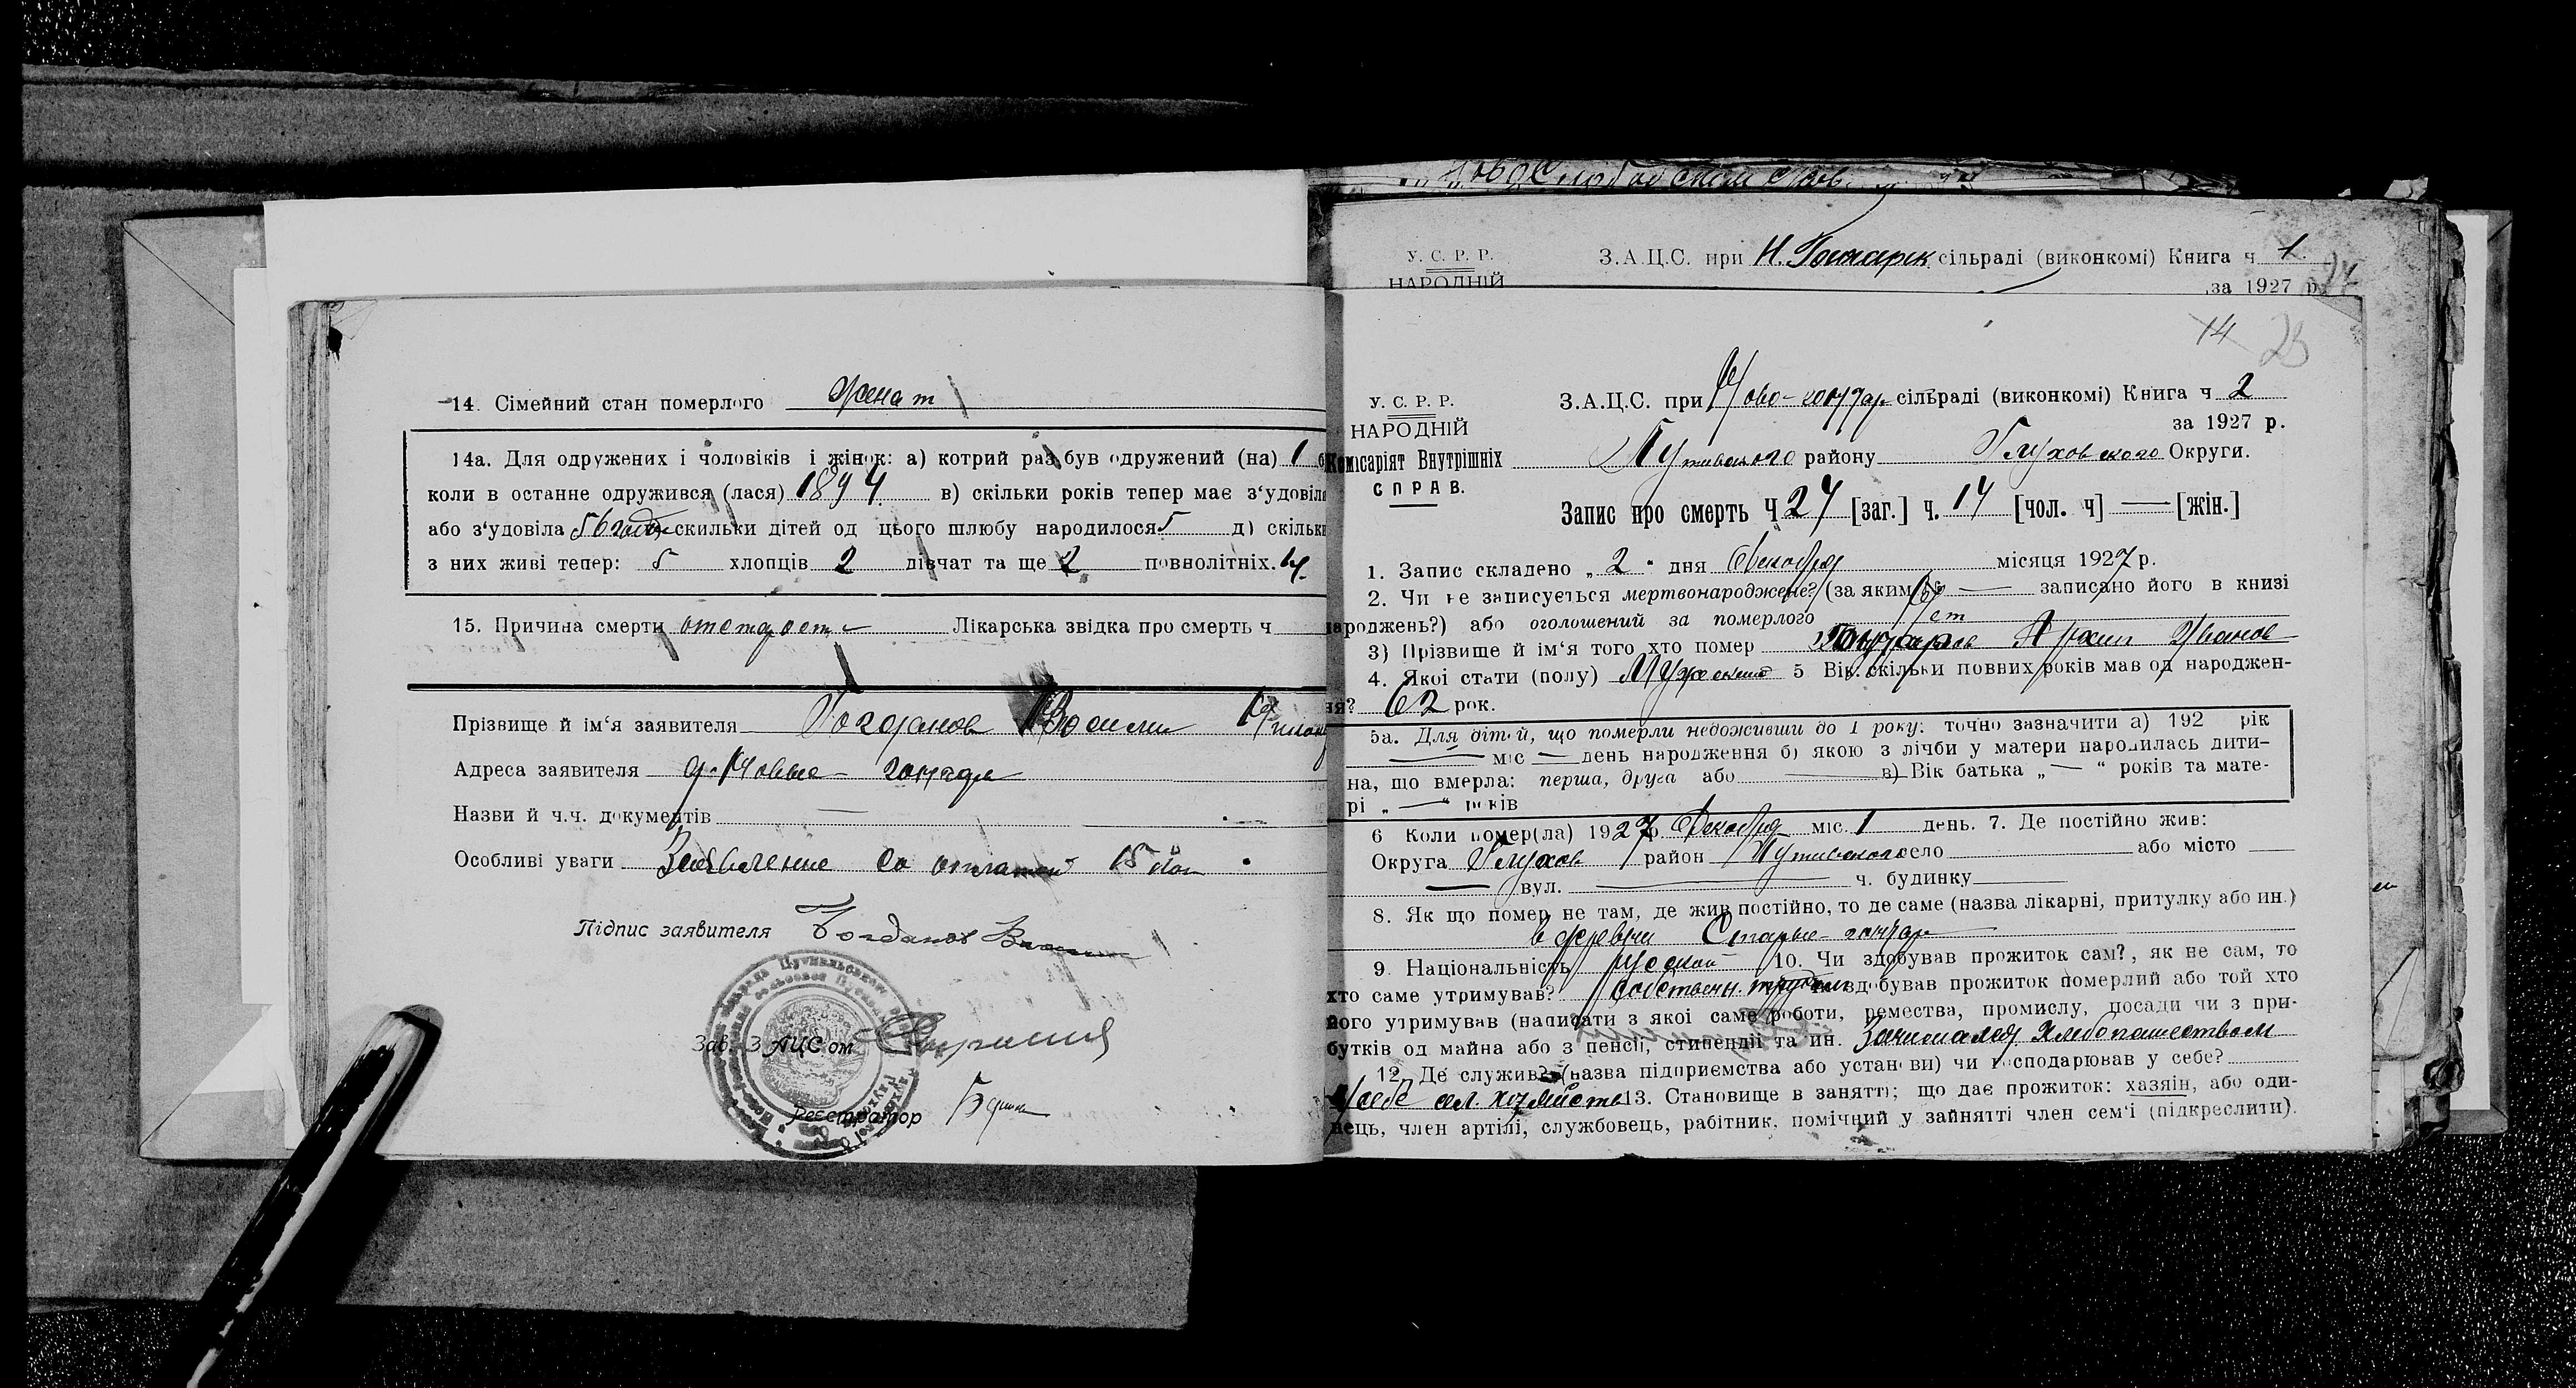 14. Сімейний стан померлого Женат
14а. Для одружених і чоловіків і жінок: а) котрий раз був одружений (на) 1
коли в останне одружився (лася) 1894 в) скільки років тепер має з‘удовіла
або з‘удовіла 56 скильки дітей од цього шлюбу народилося 5 д) скільки
з них живі тепер: 5 хлопців 2 дівчат та ще 2 повнолітніх.
15. Причина смерти Лікарська звідка про смерть ч
Прізвище й ім‘я заявителя Богданов Василий
Адреса заявителя д. Новые-гончари
Назви й ч.ч. документів —
Особливі уваги Заявление со оплатой 15 коп
Підпис заявителя Богданов
Зав. ЗАЦС‘ом
Реєстратор
У. С. Р. Р.
З.А.Ц.С. при Н. Гончарск сільраді (виконкомі) Книга ч 1
НАРОДНІЙ
за 1927 р.
14 25
У. С. Р. Р. З.А.Ц.С. при Ново-гончар сільраді (виконкомі) Книга ч 2
НАРОДНІЙ за 1927 р.
Комісаріят Внутрішніх Путивльского району Глуховского Округи.
СПРАВ.
Запис про смерть Ч 27 [заг.] ч. 17 [чол. ч] — [жін.]
1. Запис складено „ 2 “ дня Декабря місяця 1927 р.
2. Чи не записується мертвонароджене? (за яким № — записано його в книзі
народжень?) або оголошений за померлого нет
3) Прізвище й ім‘я того хто помер Гончаров Архип Иванов
4. Якої стати (полу) Мужской 5 Вік. скільки повних років мав од народжен-
ня? 62 рок.
5а. Для дітей, що померли недоживши до 1 року: точно зазначити а) 192 рік
— міс — день народження б) якою з лічби у матери народилась дити-
на, що вмерла: перша, друга або — в) Вік батька „ — “ років та мате-
рі „ — “ років
6 Коли помер(ла) 1927 р. Декабря міс. 1 день. 7. Де постійно жив:
Округа Глухов район Путивльского село або місто
— вул. — ч. будинку
8. Як що помер не там, де жив постійно, то де саме (назва лікарні, притулку або ин.)
в деревни Старые-гончари
9. Національність русской 10. Чи здобував прожиток сам?, як не сам, то
хто саме утримував? собственн. трудом здобував прожиток померлий або той хто
його утримував (написати з якої саме роботи, ремества, промислу, посади чи з при-
бутків од майна або з пенсії, стипендії та ин. Занимался Хлебопашеством
12. Де служив? (назва підприємства або установи) чи господарював у себе?
У себе сел. хозяйств 13. Становище в занятті; що дає прожиток: хазяін, або оди-
нець, член артілі, службовець, рабітник, помічний у зайнятті член сем‘і (підкреслити).